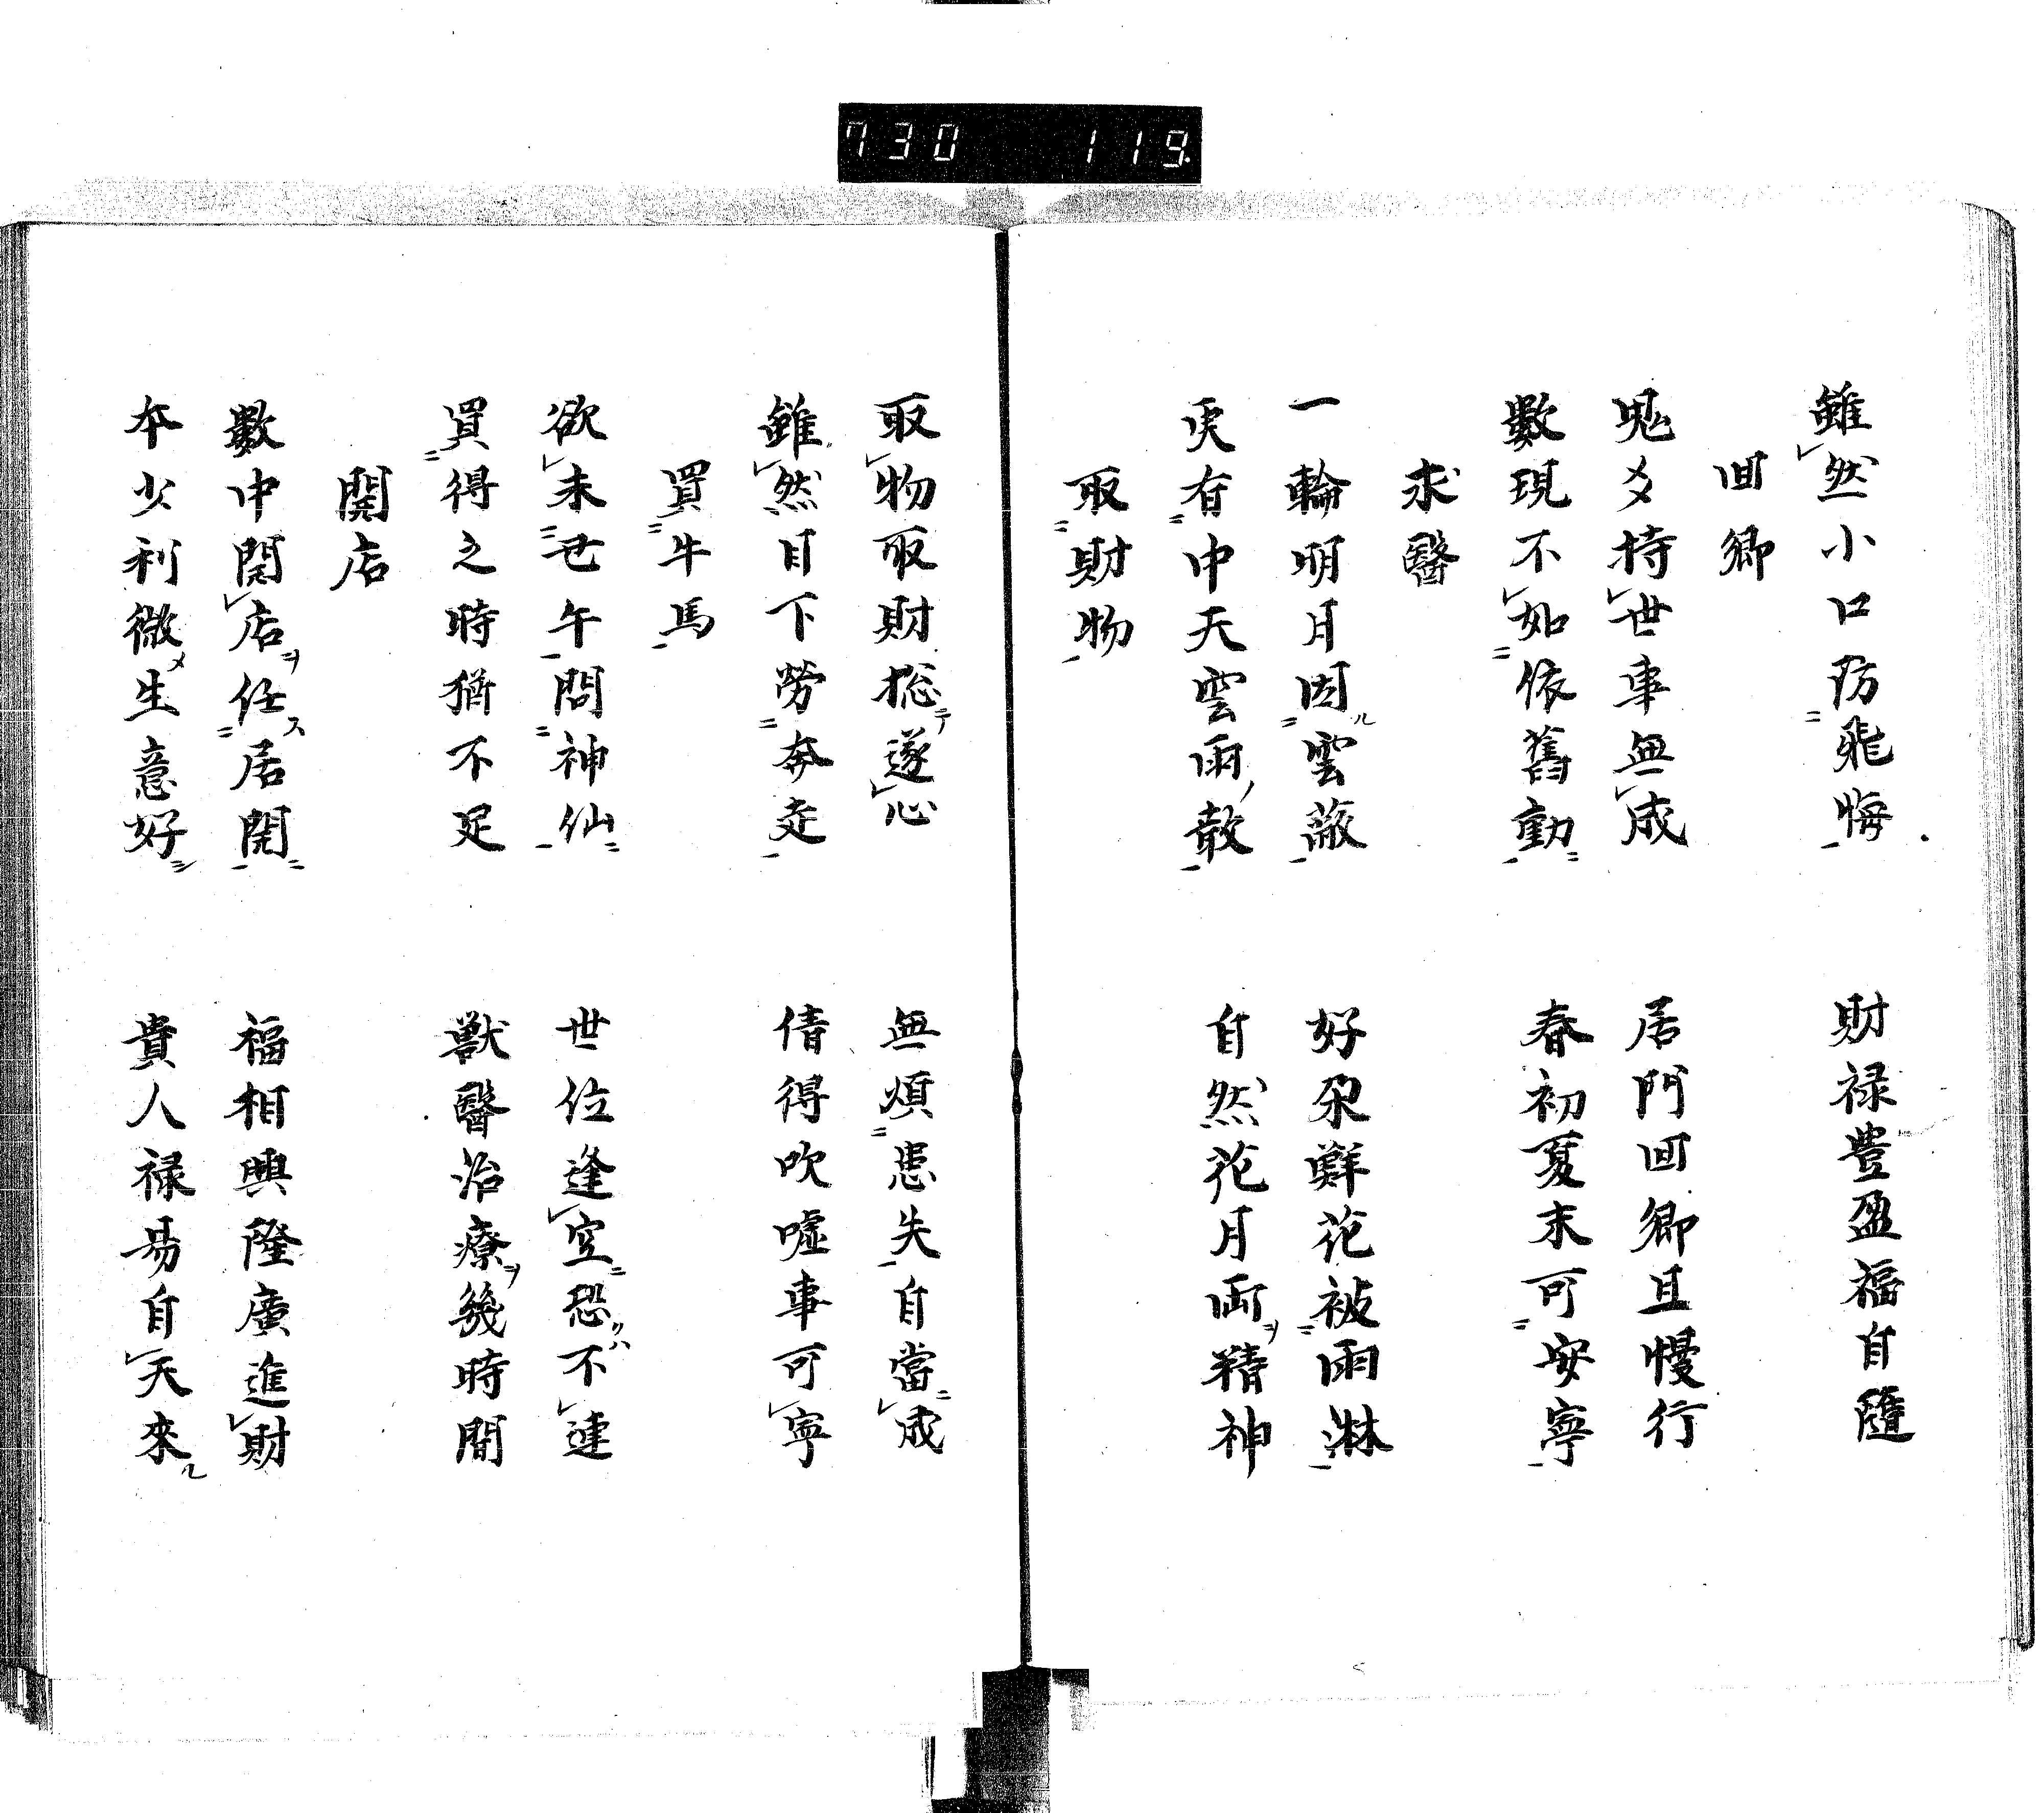 730 119
雖然小口防飛悔 財禄豊盈福自隨
回郷
鬼爻持世事無成 居門回郷且慢行
數現不如依舊動 春初夏末可安寧
求醫
一輪明月因ル雲蔽 好朶鮮花被雨淋
更有中天雲雨ノ散 自然花月両ヲ精神
取財物
取物取財捴テ遂心 無煩患失自當成
雖然目下勞奔走 倩得吹嘘事可寧
買牛馬
欲未世午問神仙 世位逢空恐クハ不連
買得之時猶不足 獣醫治療ヲ幾時間
開店
數中開店ヲ任ス居開 福相興隆廣進財
本少利微メ生意好シ 貴人禄易自天來ル